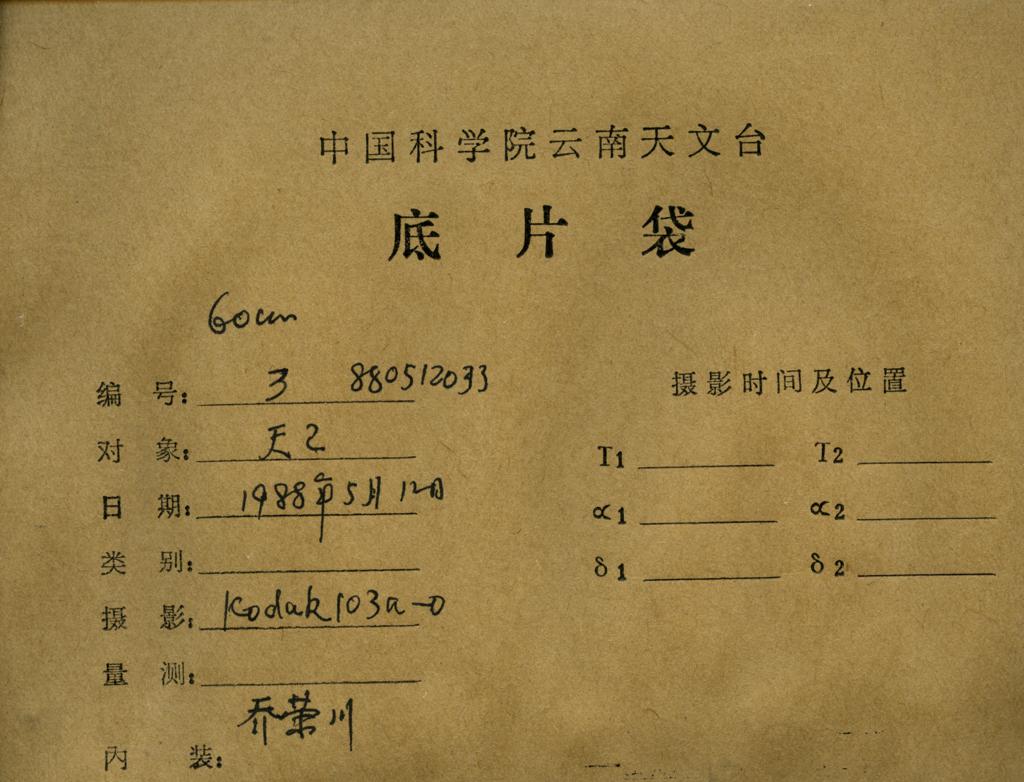 中国科学院云南天文台
底片袋
60cm
编号: 3 880512033
对象: 天2
日期: 1988年5月12日
类别:
摄影: Kodak103a-0
量测:
乔荣川
内装:
摄影时间及位置
T1 T2
α1 α2
δ1 δ2